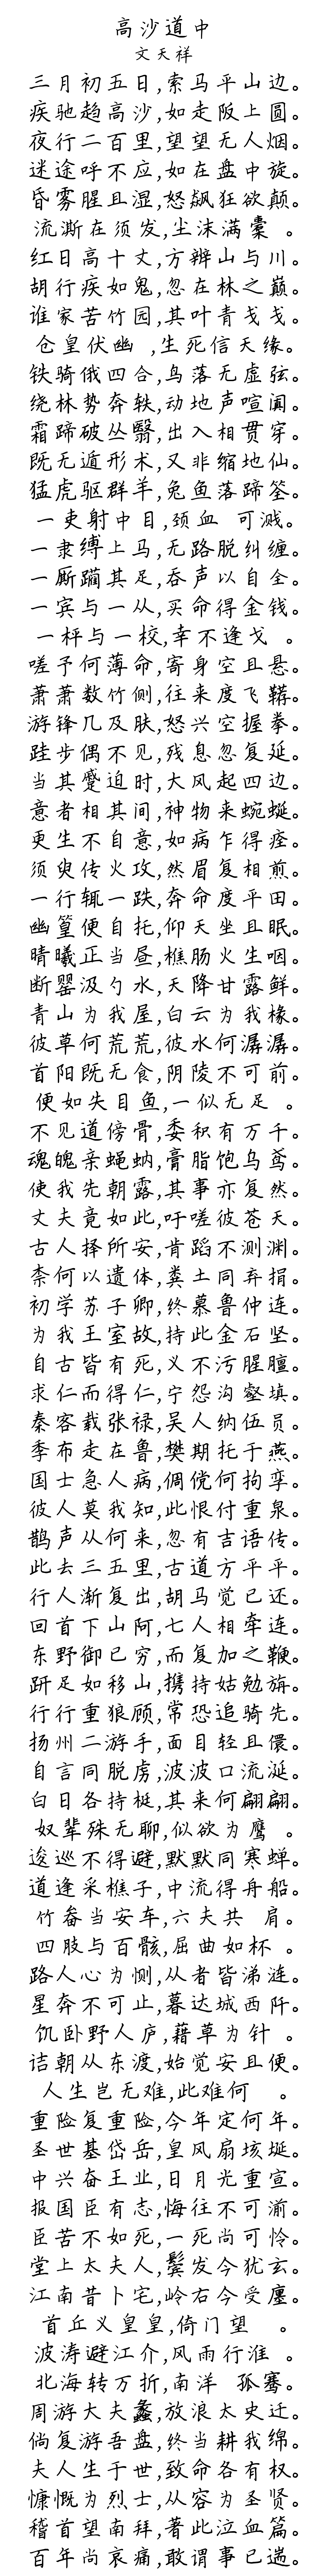 高沙道中
文天祥
三月初五日,索马平山边。
疾驰趋高沙,如走阪上圆。
夜行二百里,望望无人烟。
迷途呼不应,如在盘中旋。
昏雾腥且湿,怒飙狂欲颠。
流澌在须发,尘沫满橐 。
红日高十丈,方辨山与川。
胡行疾如鬼,忽在林之巅。
谁家苦竹园,其叶青戋戋。
仓皇伏幽 ,生死信天缘。
铁骑俄四合,鸟落无虚弦。
绕林势奔轶,动地声喧阗。
霜蹄破丛翳,出入相贯穿。
既无遁形术,又非缩地仙。
猛虎驱群羊,兔鱼落蹄筌。
一吏射中目,颈血 可溅。
一隶缚上马,无路脱纠缠。
一厮躏其足,吞声以自全。
一宾与一从,买命得金钱。
一枰与一校,幸不逢戈 。
嗟予何薄命,寄身空且悬。
萧萧数竹侧,往来度飞鞯。
游锋几及肤,怒兴空握拳。
跬步偶不见,残息忽复延。
当其蹙迫时,大风起四边。
意者相其间,神物来蜿蜒。
更生不自意,如病乍得痊。
须臾传火攻,然眉复相煎。
一行辄一跌,奔命度平田。
幽篁便自托,仰天坐且眠。
晴曦正当昼,樵肠火生咽。
断罂汲勺水,天降甘露鲜。
青山为我屋,白云为我椽。
彼草何荒荒,彼水何潺潺。
首阳既无食,阴陵不可前。
便如失目鱼,一似无足 。
不见道傍骨,委积有万千。
魂魄亲蝇蚋,膏脂饱乌鸢。
使我先朝露,其事亦复然。
丈夫竟如此,吁嗟彼苍天。
古人择所安,肯蹈不测渊。
柰何以遗体,粪土同弃捐。
初学苏子卿,终慕鲁仲连。
为我王室故,持此金石坚。
自古皆有死,义不污腥膻。
求仁而得仁,宁怨沟壑填。
秦客载张禄,吴人纳伍员。
季布走在鲁,樊期托于燕。
国士急人病,倜傥何拘孪。
彼人莫我知,此恨付重泉。
鹊声从何来,忽有吉语传。
此去三五里,古道方平平。
行人渐复出,胡马觉已还。
回首下山阿,七人相牵连。
东野御已穷,而复加之鞭。
趼足如移山,携持姑勉旃。
行行重狼顾,常恐追骑先。
扬州二游手,面目轻且儇。
自言同脱虏,波波口流涎。
白日各持梃,其来何翩翩。
奴辈殊无聊,似欲为鹰 。
逡巡不得避,默默同寒蝉。
道逢采樵子,中流得舟船。
竹畚当安车,六夫共 肩。
四肢与百骸,屈曲如杯 。
路人心为恻,从者皆涕涟。
星奔不可止,暮达城西阡。
饥卧野人庐,藉草为针 。
诘朝从东渡,始觉安且便。
人生岂无难,此难何 。
重险复重险,今年定何年。
圣世基岱岳,皇风扇垓埏。
中兴奋王业,日月光重宣。
报国臣有志,悔往不可湔。
臣苦不如死,一死尚可怜。
堂上太夫人,鬓发今犹玄。
江南昔卜宅,岭右今受廛。
首丘义皇皇,倚门望 。
波涛避江介,风雨行淮 。
北海转万折,南洋 孤骞。
周游大夫蠡,放浪太史迁。
倘复游吾盘,终当耕我绵。
夫人生于世,致命各有权。
慷慨为烈士,从容为圣贤。
稽首望南拜,著此泣血篇。
百年尚哀痛,敢谓事已遄。